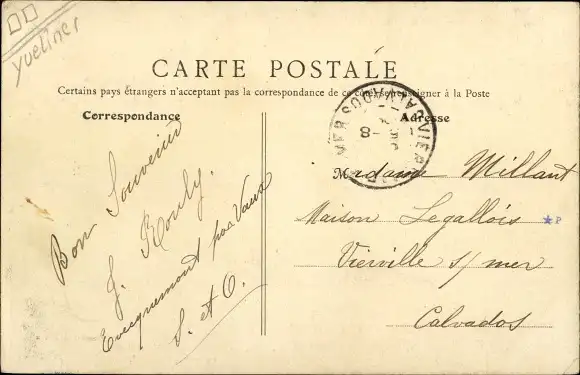 Yvelines
CARTE POSTALE
Certains pays étrangers n'acceptent pas la correspondance de ce côté se renseigner à la Poste
Correspondance
Adresse
Bon Souvenir
J. Rouly.
Evecquemont par Vaux
S. et O.
Madame Millant
Maison Legallois
Vierville s/ mer
Calvados